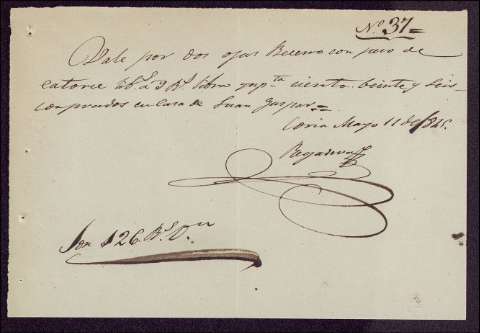 Nº 37=
Vale por dos ojas Becerro con peso de
catorce lbs. á 9 Rs. libra ymp.ta ciento beinte y seis
comprados en casa de Juan Gaspar=
Coria Mayo 11 de 1845.
Son 126 Rs. Vn